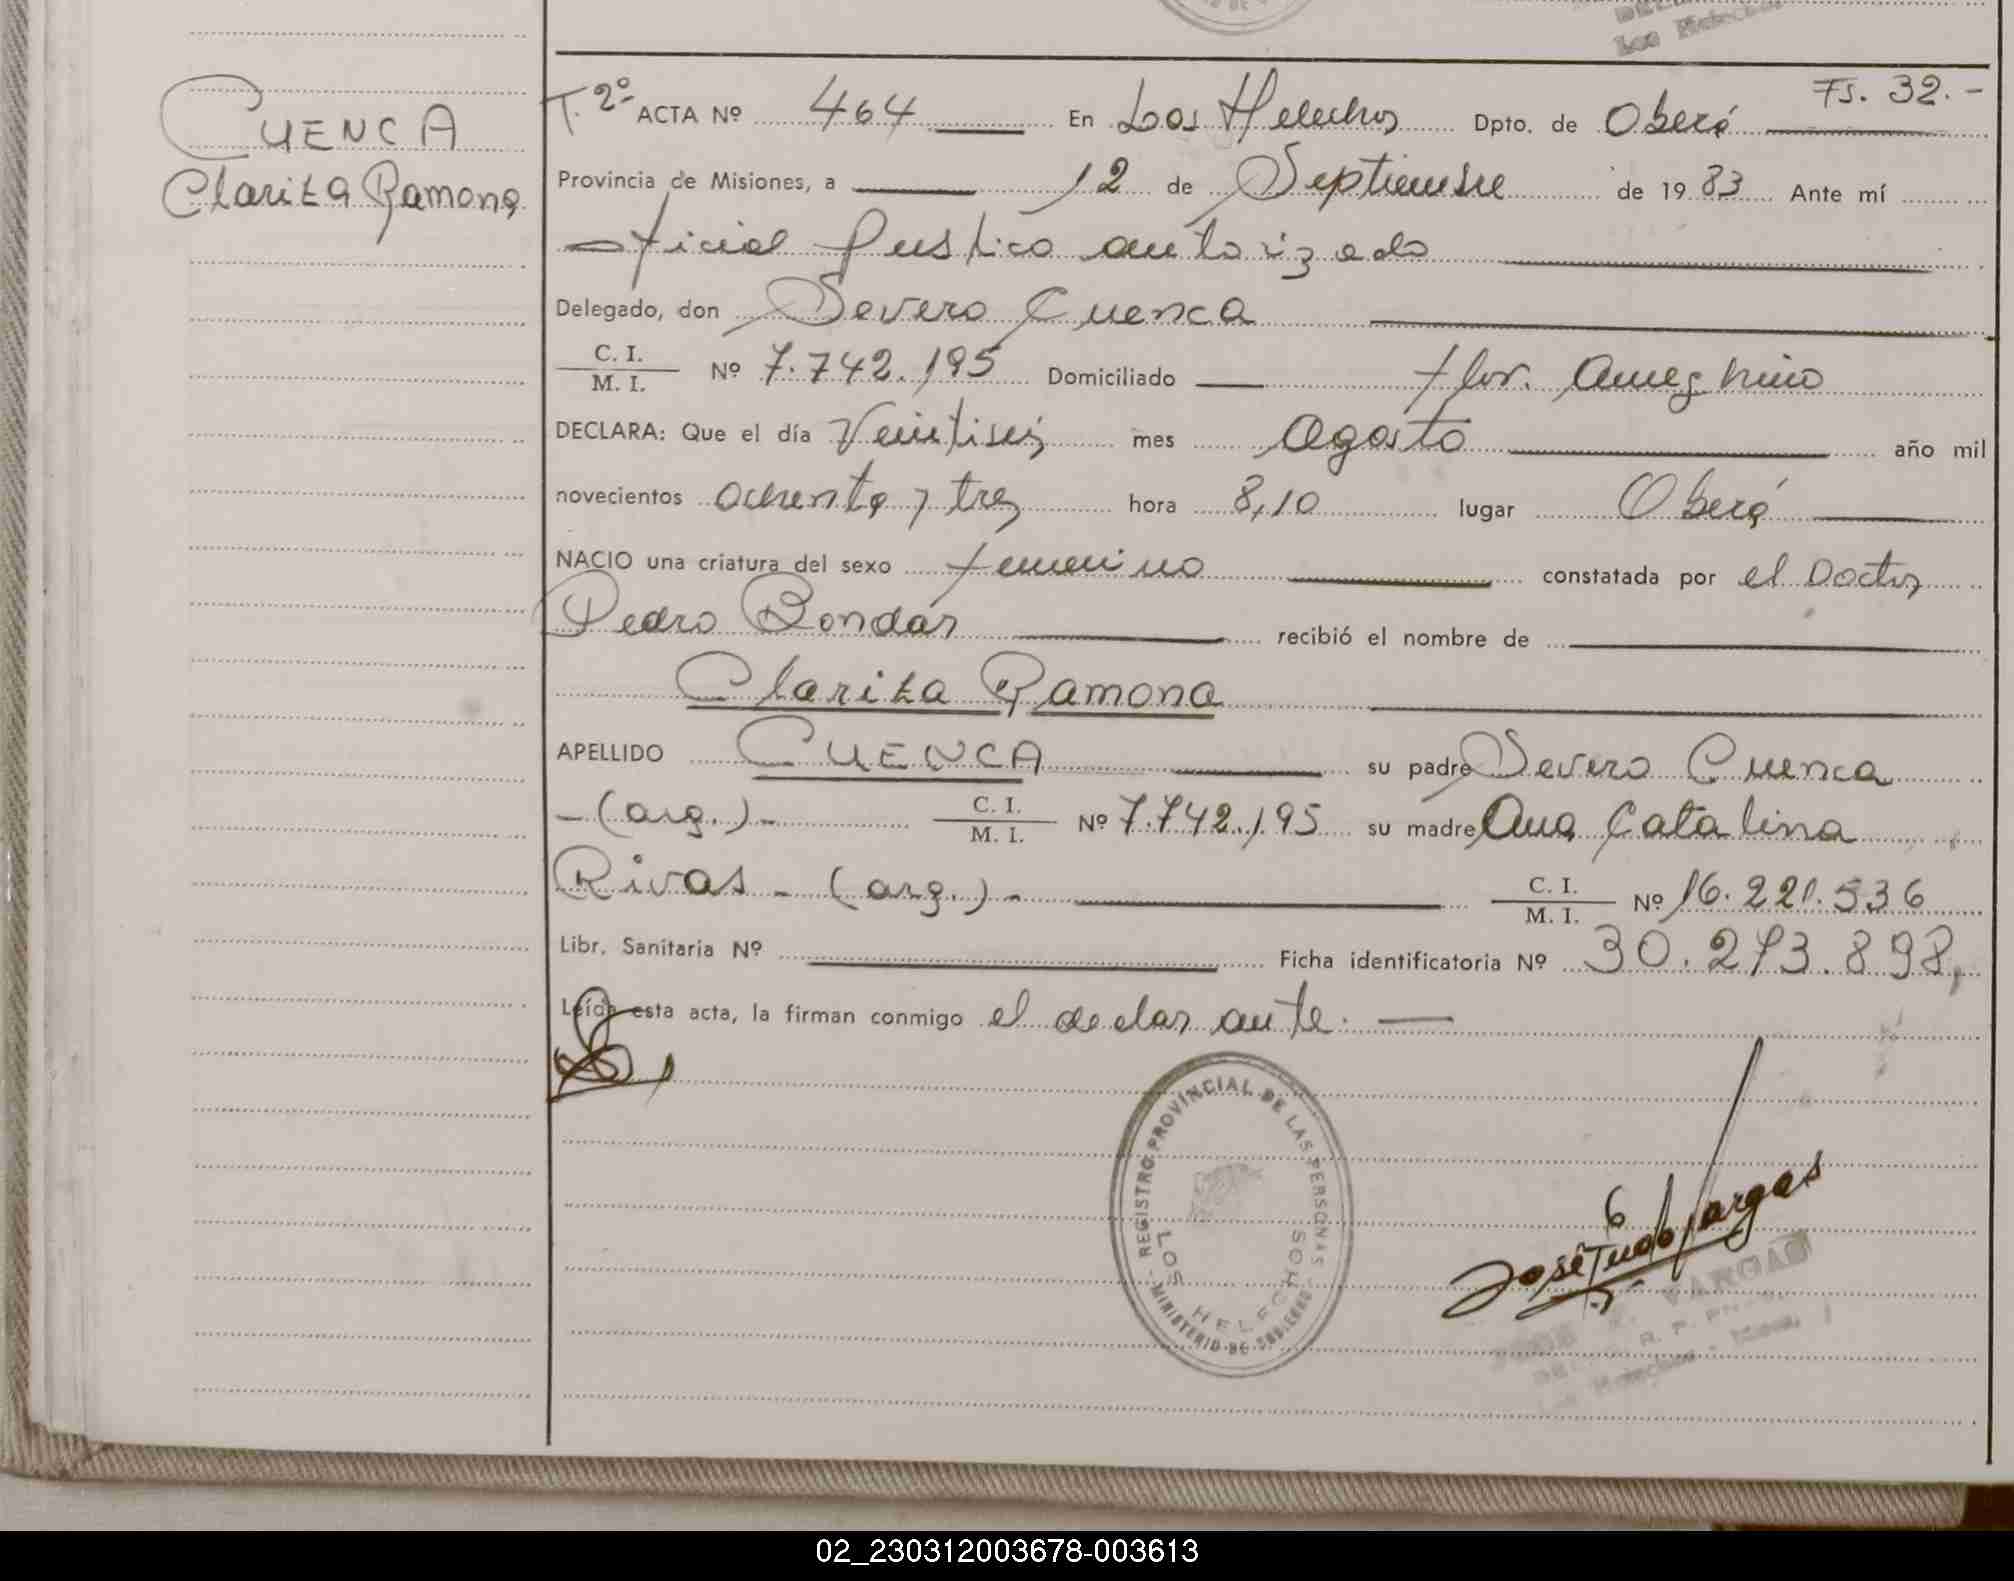 Los Helechos
CUENCA
Clarita Ramona
T. 2º ACTA Nº 464 En Los Helechos Dpto. de Oberá Fs. 32.-
Provincia de Misiones, a 12 de Septiembre de 1983 Ante mí
Oficial Publico autorizado
Delegado, don Severo Cuenca
C. I. / M. I. Nº 7.742.195 Domiciliado Flor. Ameghino
DECLARA: Que el día Veintiseis mes Agosto año mil
novecientos ochenta y tres hora 8,10 lugar Oberá
NACIO una criatura del sexo femenino constatada por el Doctor
Pedro Bondar recibió el nombre de
Clarita Ramona
APELLIDO CUENCA su padre Severo Cuenca
-(arg.)- C. I. / M. I. Nº 7.742.195 su madre Ana Catalina
Rivas - (arg.) - C. I. / M. I. Nº 16.221.536
Libr. Sanitaria Nº Ficha identificatoria Nº 30.273.898,
Leída esta acta, la firman conmigo el declarante.
- REGISTRO PROVINCIAL DE LAS PERSONAS -
MINISTERIO DE GOBIERNO
LOS HELECHOS
José Tudo Vargas
VARGAS
Los Helechos - Mnes.
02_230312003678-003613